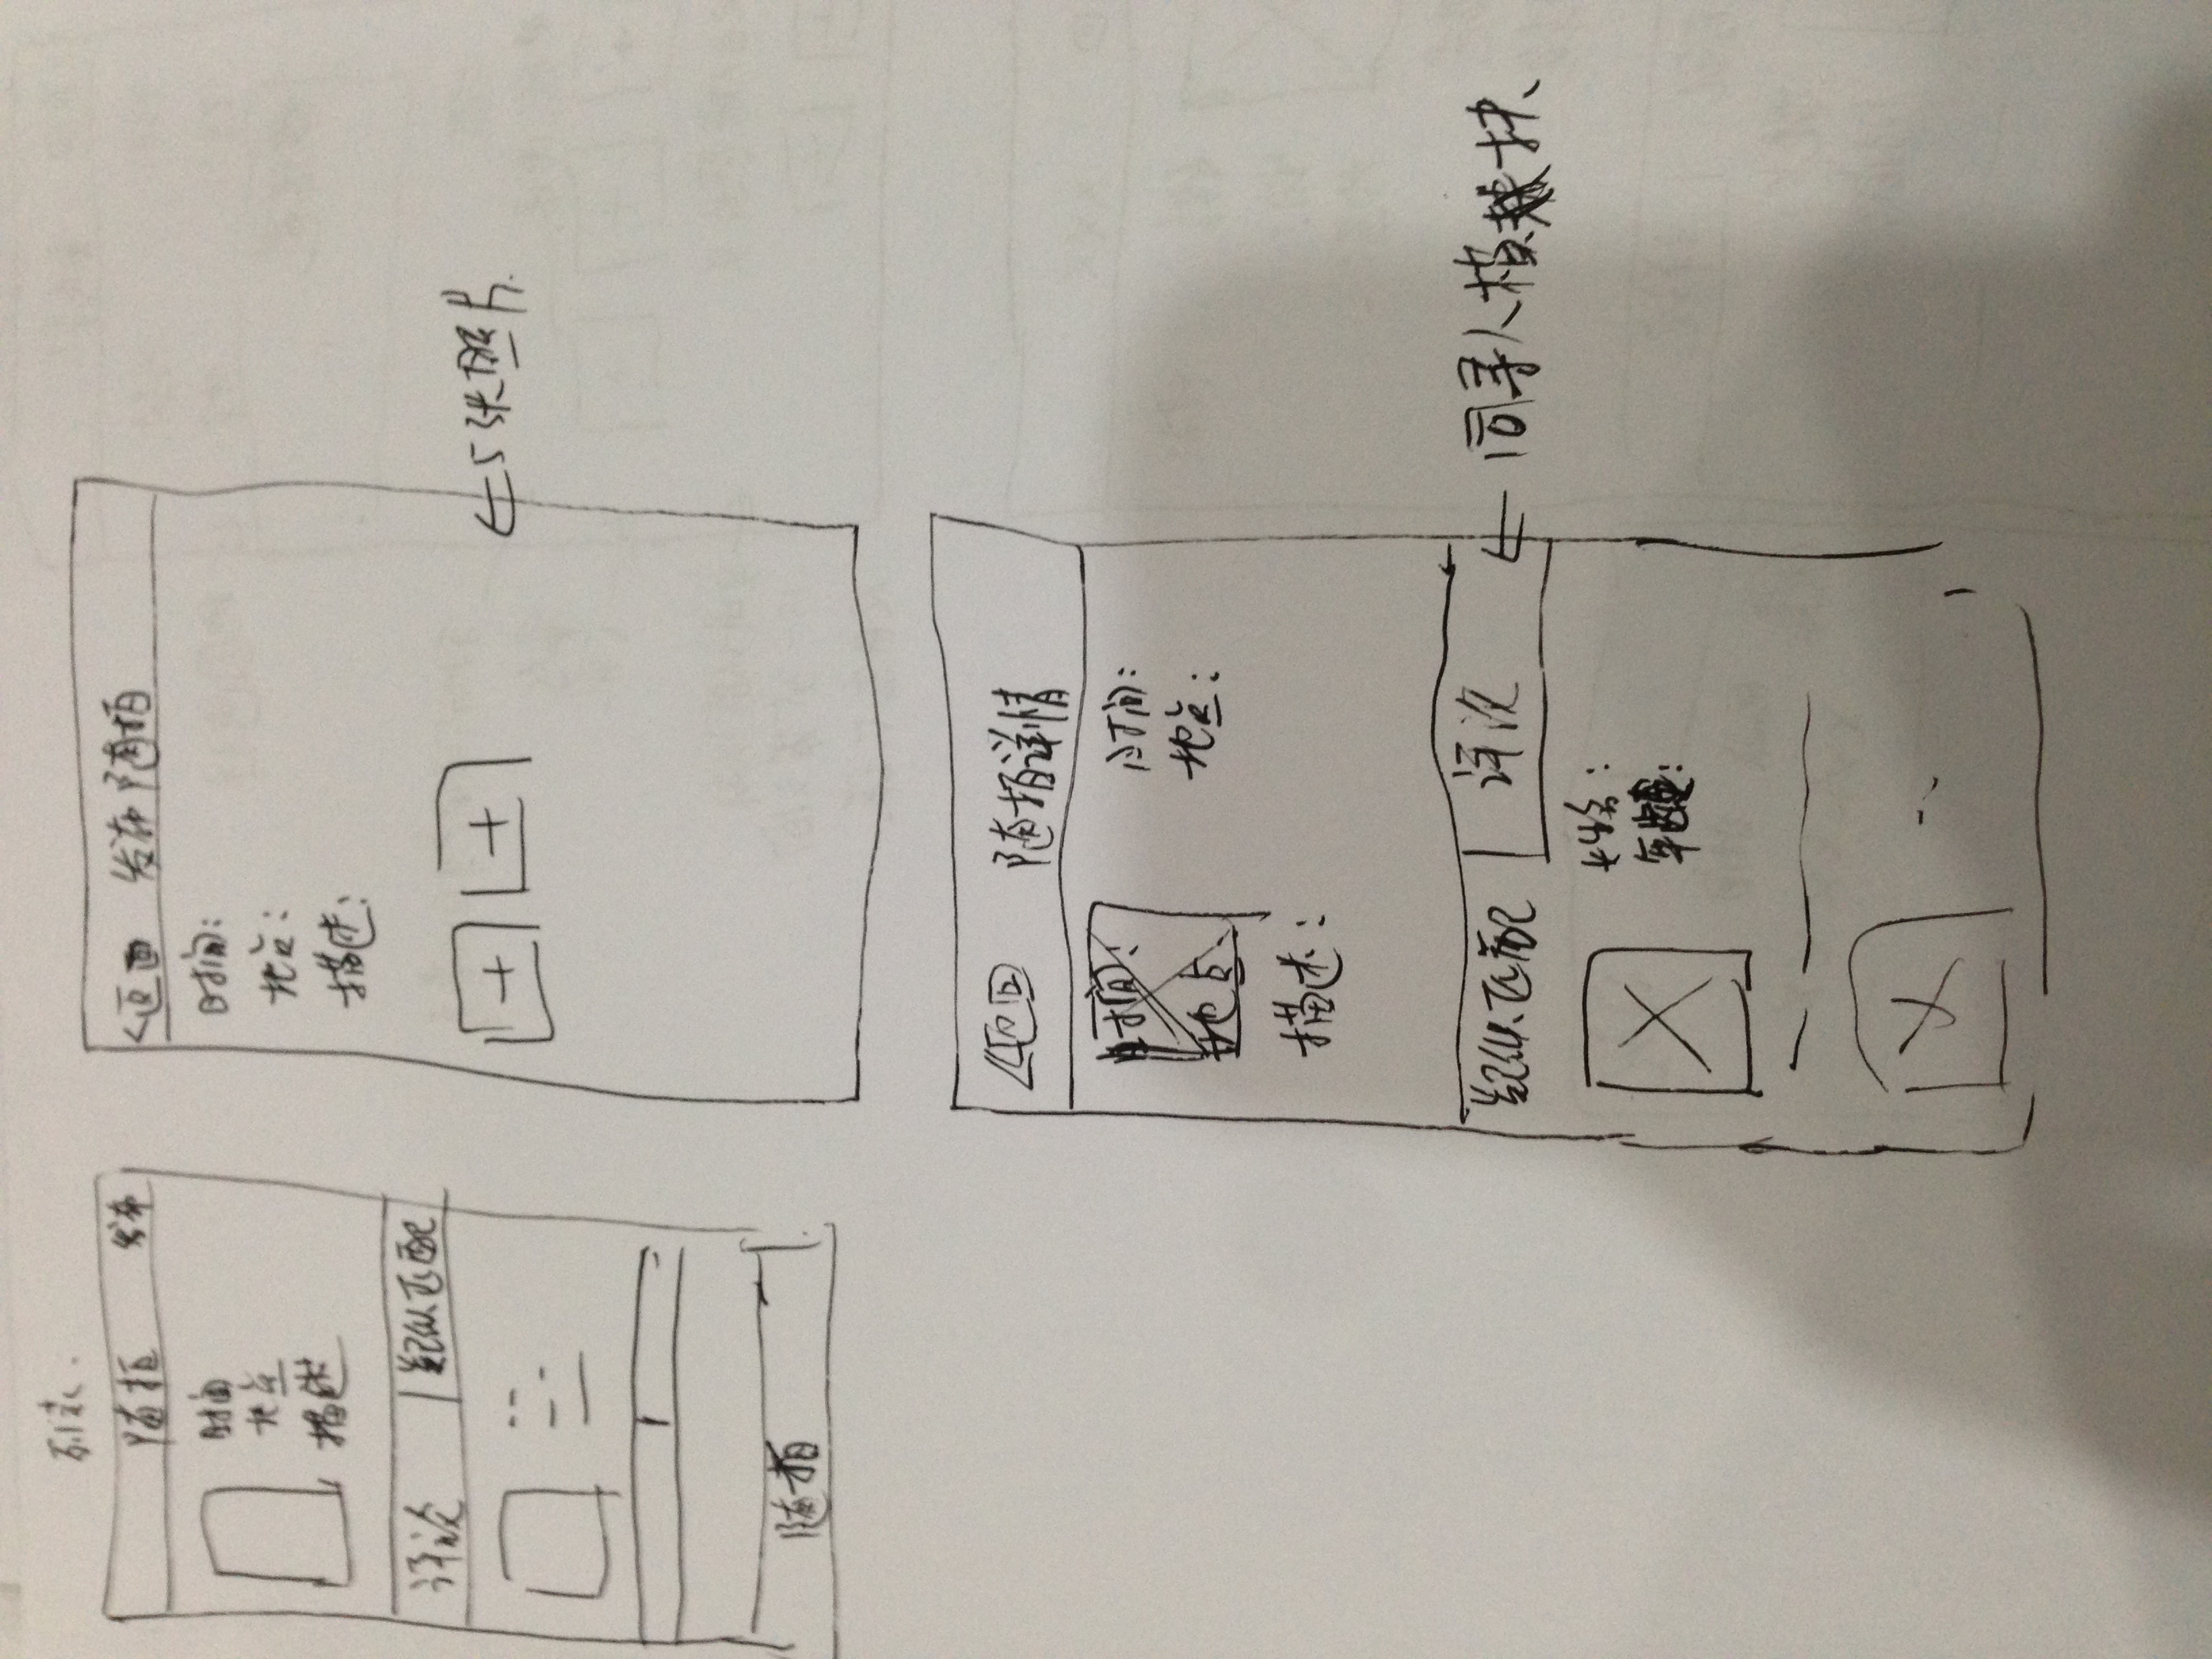 列表.
随拍 发布
时间
地点
描述
评论 疑似匹配
随拍
<返回 发布随拍
时间:
地点:
描述:
+ +
←5张照片.
<返回 随拍详情
时间:
地点
时间:
地点:
描述:
疑似匹配 评论
← 同寻人模块
姓名:
年龄: